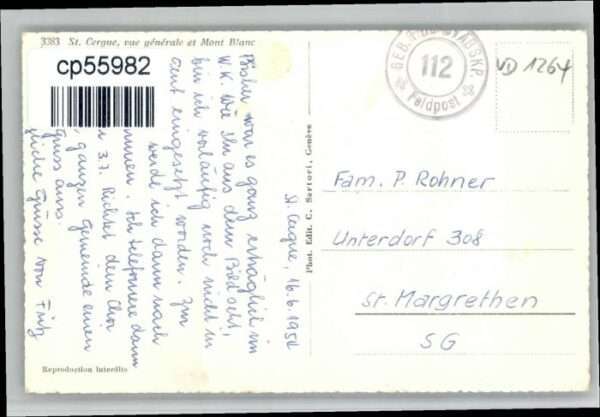 3383 St. Cergue, vue générale et Mont Blanc
cp55982
GEB. FÜS. STABSKP.
112
Feldpost
VD 1264
St Cergue, 16.6.1954
Bisher war es ganz erträglich im
W.K. Wie Ihr aus dem Bild seht,
bin ich vorläufig noch nicht in
Genf eingesetzt worden. Zum
werde ich dann nach
kommen. Ich telefoniere dann
3.7. Richtet dem Chor
ganzen Gemeinde einen
Gruss aus.
Grüsse von Fritz
Fam. P. Rohner
Unterdorf 308
St. Margrethen
SG
Phot. Edit. C. Sartori, Genève
Reproduction interdite